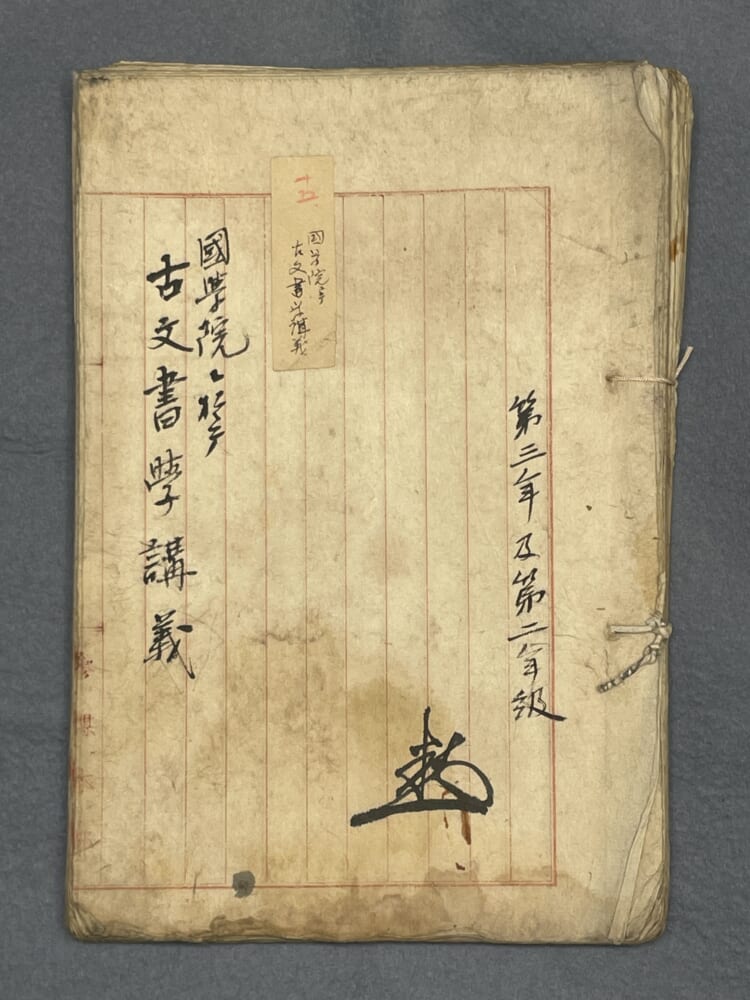 第三年及第二年級
十五
国学院ニ於テ
古文書学講義
國學院ニ於テ
古文書學講義